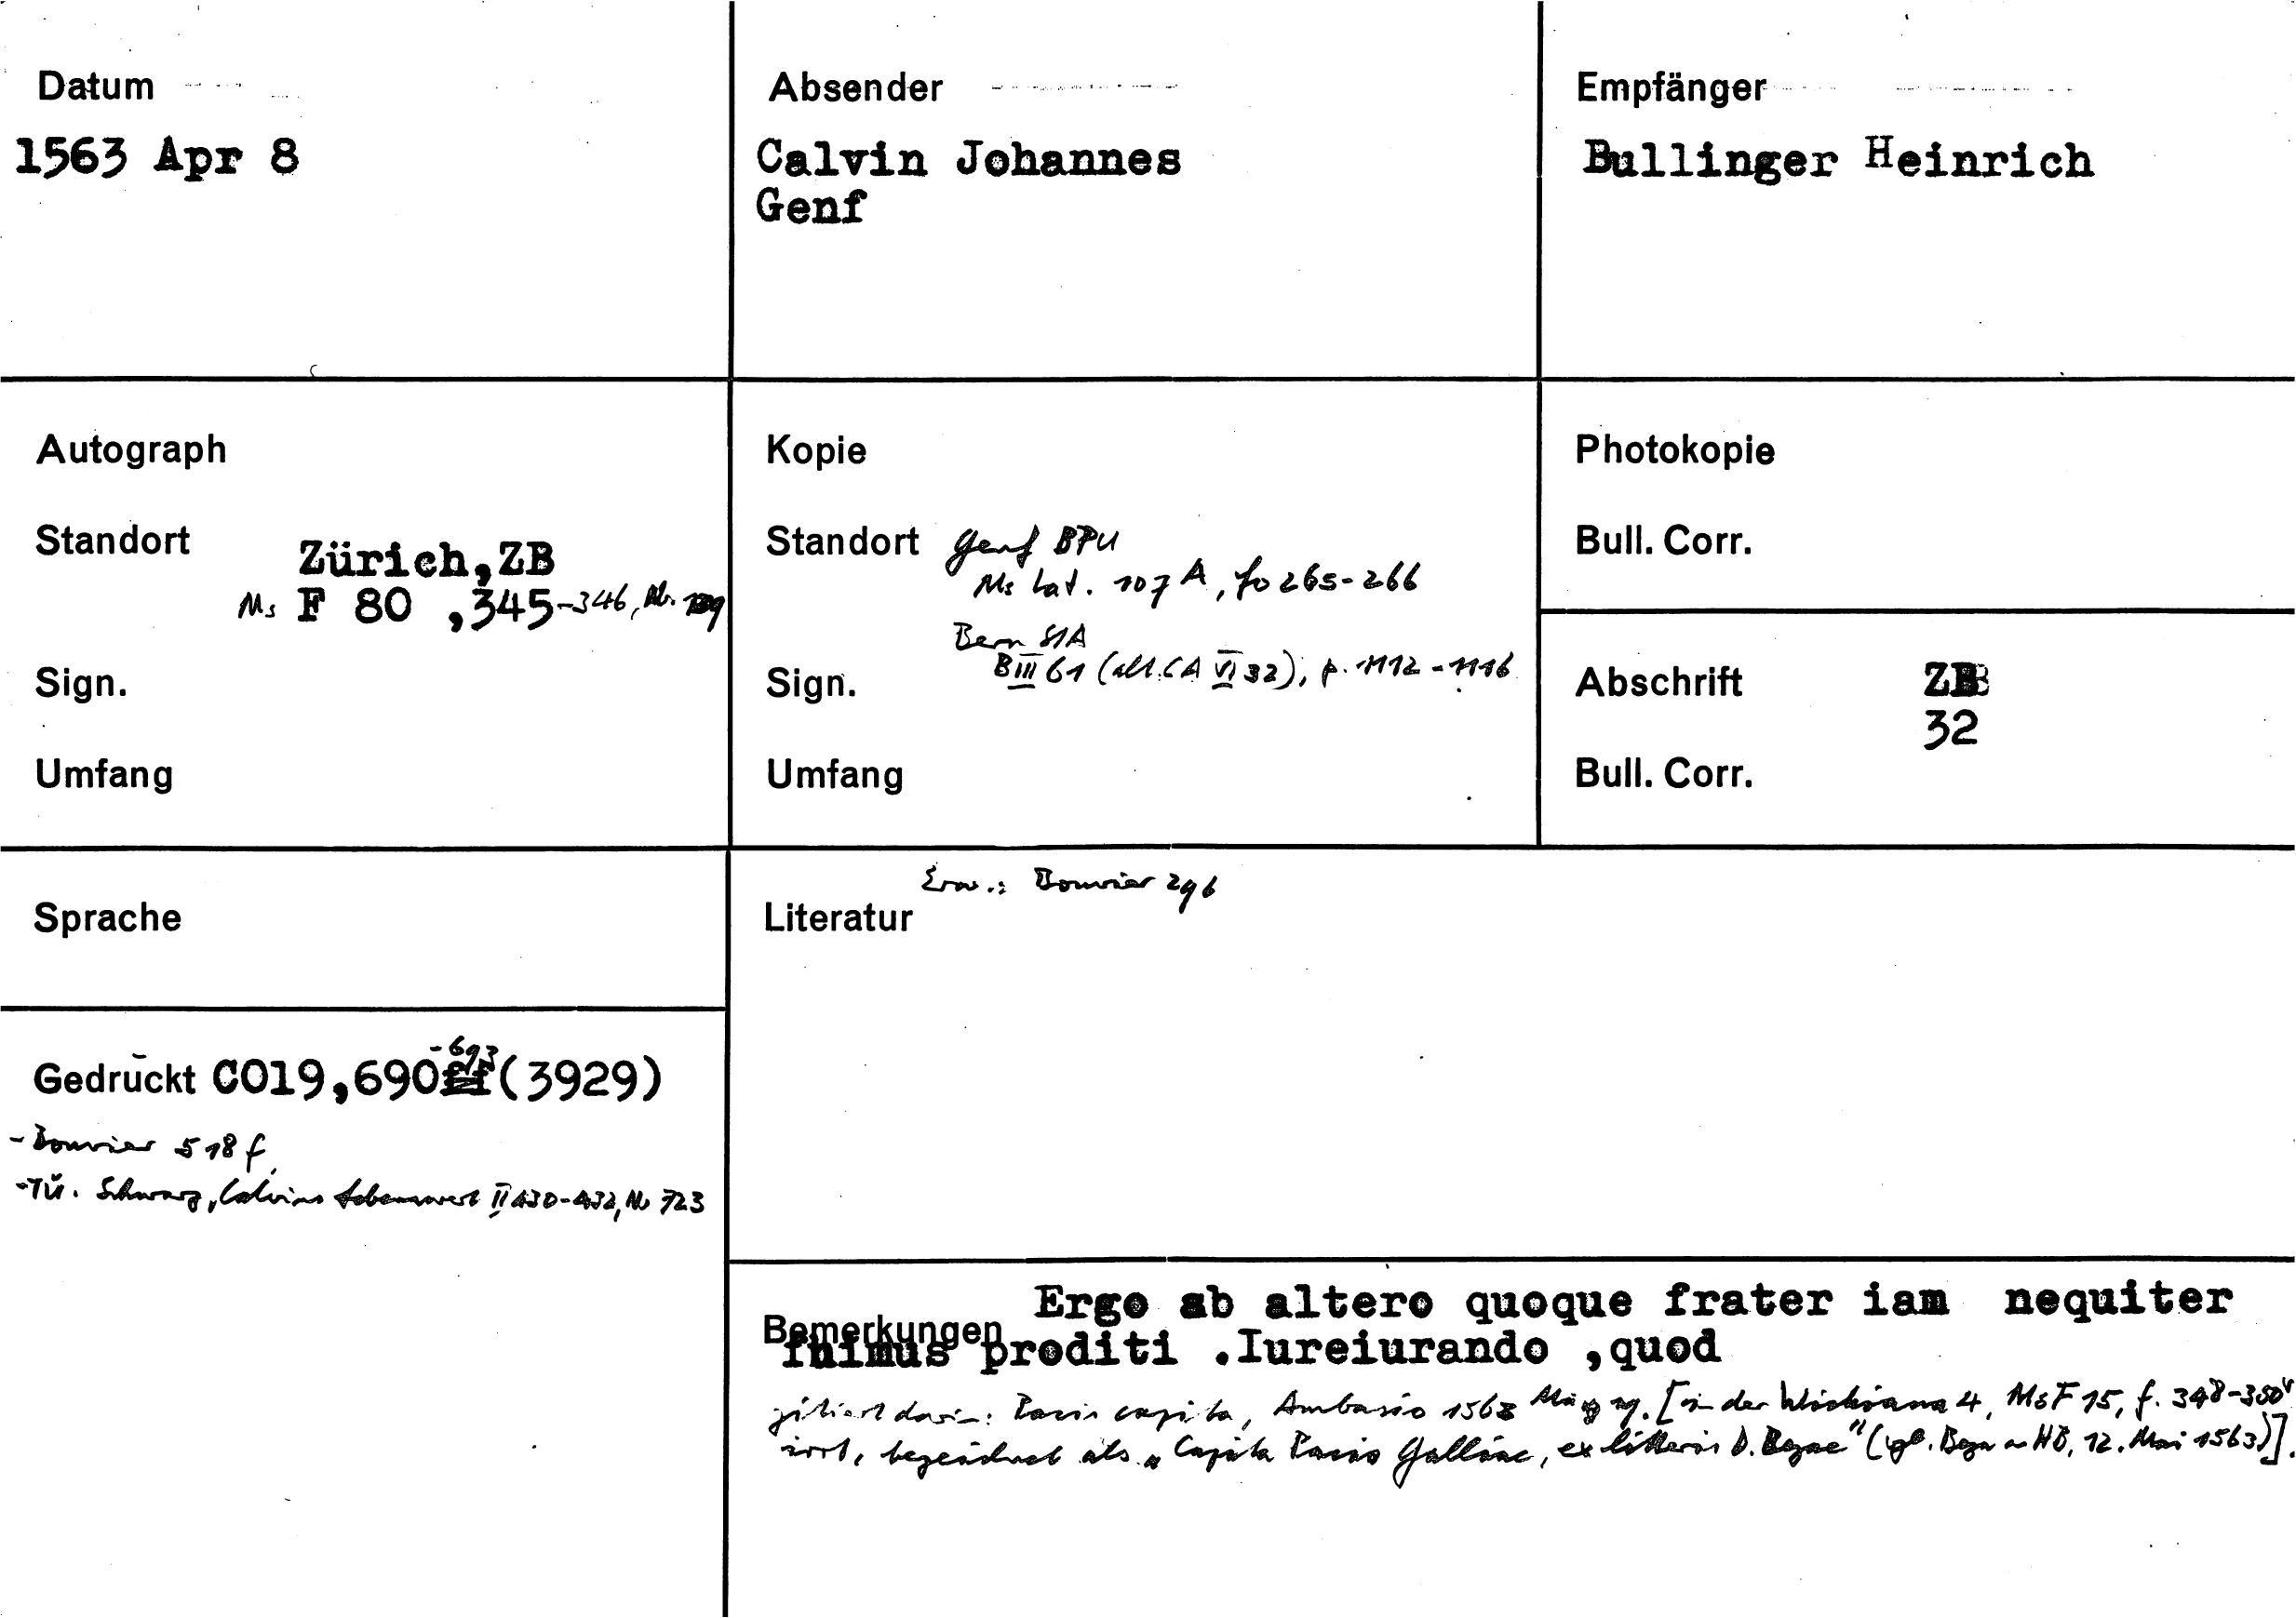 Datum
1563 Apr 8
Absender
Calvin Johannes
Genf
Empfänger
Bullinger Heinrich
Autograph
Standort Zürich,ZB
Ms F 80 ,345-346, Nr.
Sign.
Umfang
Kopie
Standort Genf BPU
Ms lat. 107 A, fo 265-266
Bern StA
B III 61 (alt CA VI 32), p. 1112-1116
Sign.
Umfang
Photokopie
Bull. Corr.
Abschrift ZB
32
Bull. Corr.
Sprache
Erw.: Bouvier 296
Literatur
Gedruckt CO19,690-693(3929)
- Bouvier 518 f.
- Tü. Schwarz, Calvins Lebenswerk II 430-432, Nr 723
Ergo ab altero quoque frater iam nequiter
Bemerkungen
fuimus proditi .Iureiurando ,quod
zitiert darin: Pacis capita, Ambasio 1563 März 19. [in der Wickiana 4, Ms F 15, f. 348-350v
irrt. bezeichnet als „Capita Pacis Gallicae, ex litteris D. Bezae" (vgl. Beza an HB, 12. Mai 1563)].